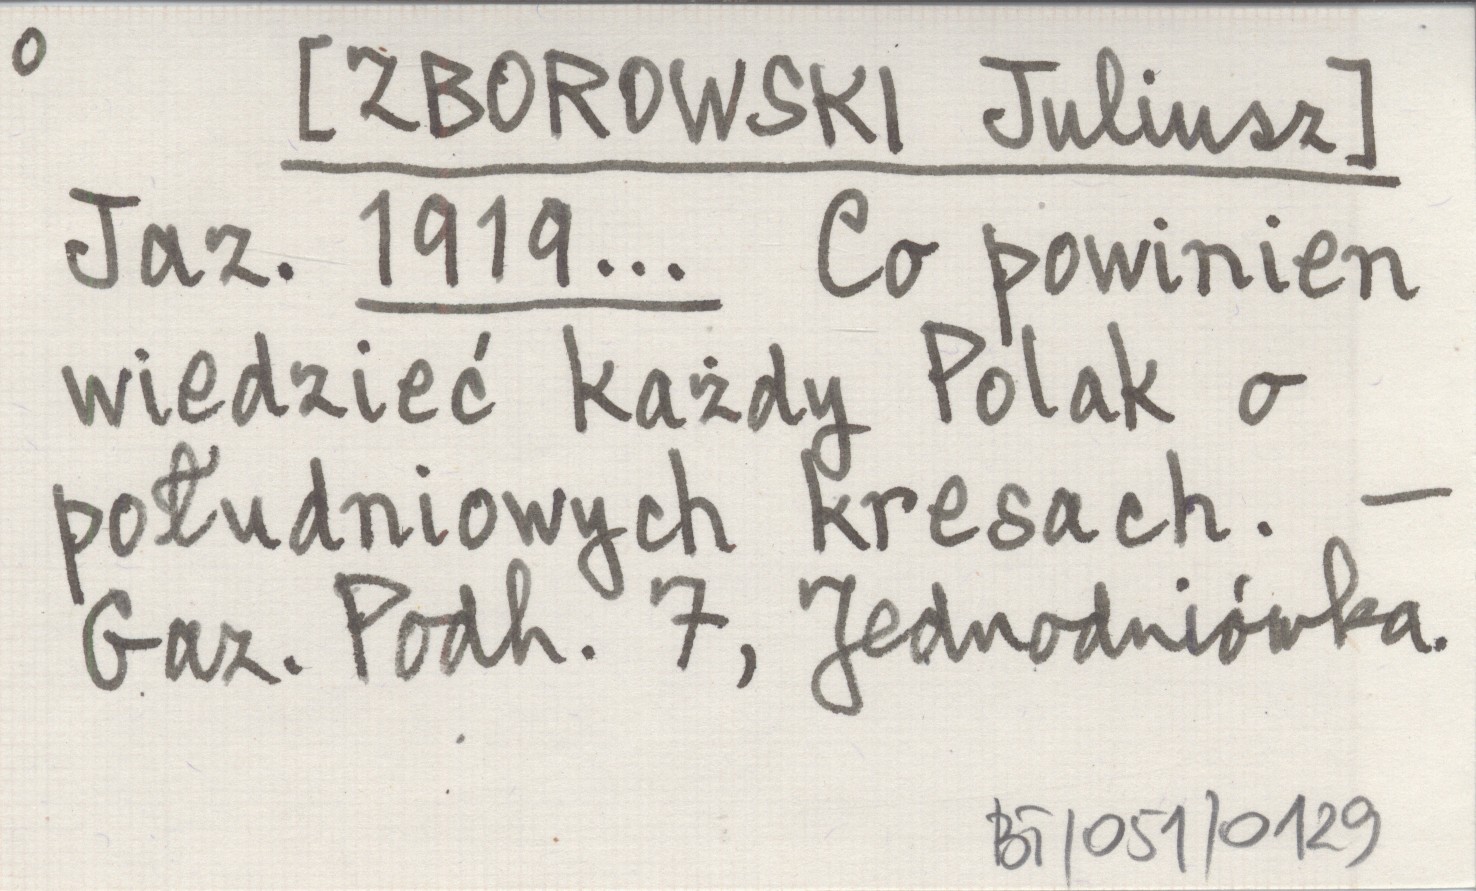 o
[ZBOROWSKI Juliusz]
Jaz. 1919... Co powinien
wiedzieć każdy Polak o
południowych kresach. —
Gaz. Podh. 7, Jednodniówka.
BŁ/051/0129